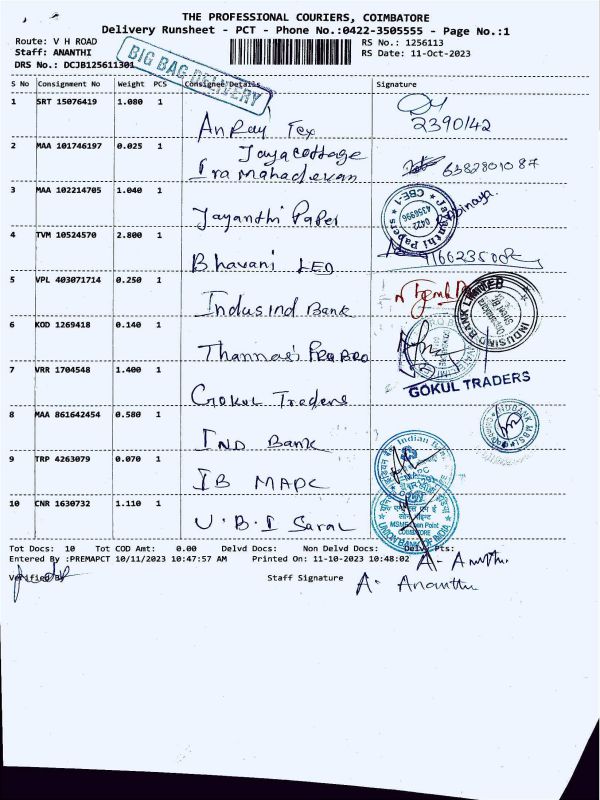 THE PROFESSIONAL COURIERS, COIMBATORE
Delivery Runsheet - PCT - Phone No.:0422-3505555 - Page No.:1
Route: V H ROAD RS No.: 1256113
Staff: ANANTHI RS Date: 11-Oct-2023
DRS No.: DCJB125611301
BIG BAG DELIVERY
S No Consignment No Weight PCS Consignee Details Signature
1 SRT 15076419 1.080 1
AnRay Tex 2390142
2 MAA 101746197 0.025 1 Jaya cottage
Ira mahadevan 6382801087
3 MAA 102214705 1.040 1
Jayanthi Paper
Jayanthi Papers CBE-1 0422 4356996
4 TVM 10524570 2.800 1
Bhavani LED
5 VPL 403071714 0.250 1
Indusind Bank
INDUSIND BANK Limited
6 KOD 1269418 0.140 1
7 VRR 1704548 1.400 1 GOKUL TRADERS
Gokul Traders
8 MAA 861642454 0.580 1
IND Bank
9 TRP 4263079 0.070 1 Indian Bank
IB MAPC
10 CNR 1630732 1.110 1
U.B.I Saral
UNION BANK OF INDIA
COIMBATORE
Tot Docs: 10 Tot COD Amt: 0.00 Delvd Docs: Non Delvd Docs: Delvd Pts:
Entered By :PREMAPCT 10/11/2023 10:47:57 AM Printed On: 11-10-2023 10:48:02
Verified By Staff Signature A. Ananthi